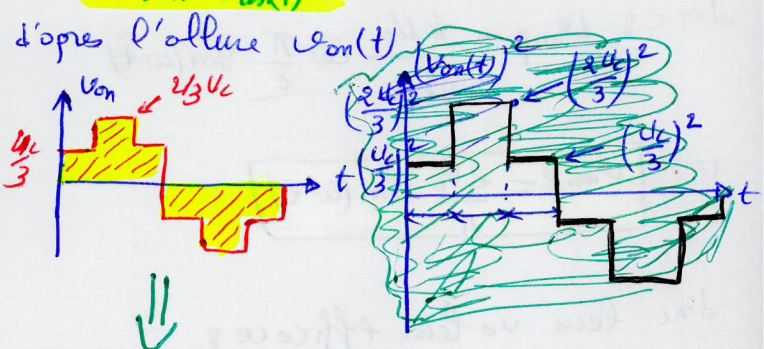 d'apres l'allure von(t)
von
2/3 Uc
Uc/3
t
(von(t))²
(2Uc/3)²
(2Uc/3)²
(Uc/3)²
(Uc/3)²
t